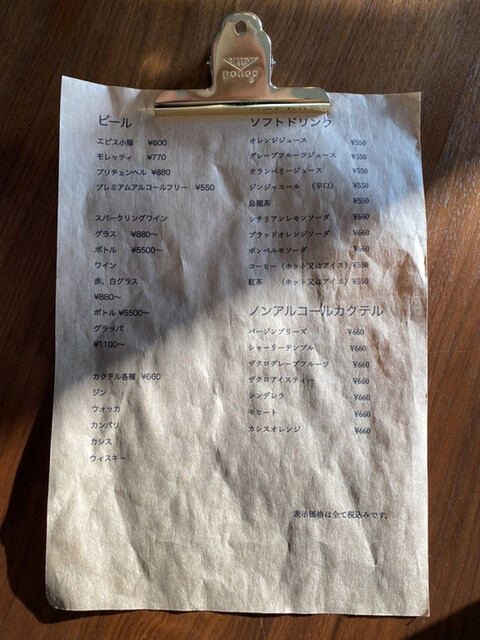 ビール
エビス小瓶 ¥600
モレッティ ¥770
プリチェンヘル ¥880
プレミアムアルコールフリー ¥550
スパークリングワイン
グラス ¥880〜
ボトル ¥5500〜
ワイン
赤、白グラス
¥880〜
ボトル ¥5500〜
グラッパ
¥1100〜
カクテル各種 ¥660
ジン
ウォッカ
カンパリ
カシス
ウィスキー
ソフトドリンク
オレンジジュース ¥550
グレープフルーツジュース ¥550
クランベリージュース ¥550
ジンジャエール (辛口) ¥550
烏龍茶 ¥550
シチリアンレモンソーダ ¥660
ブラッドオレンジソーダ ¥660
ポンペルモソーダ ¥660
コーヒー (ホット又はアイス) ¥550
紅茶 (ホット又はアイス) ¥550
ノンアルコールカクテル
バージンブリーズ ¥660
シャーリーテンプル ¥660
ザクログレープフルーツ ¥660
ザクロアイスティー ¥660
シンデレラ ¥660
モヒート ¥660
カシスオレンジ ¥660
表示価格は全て税込みです。